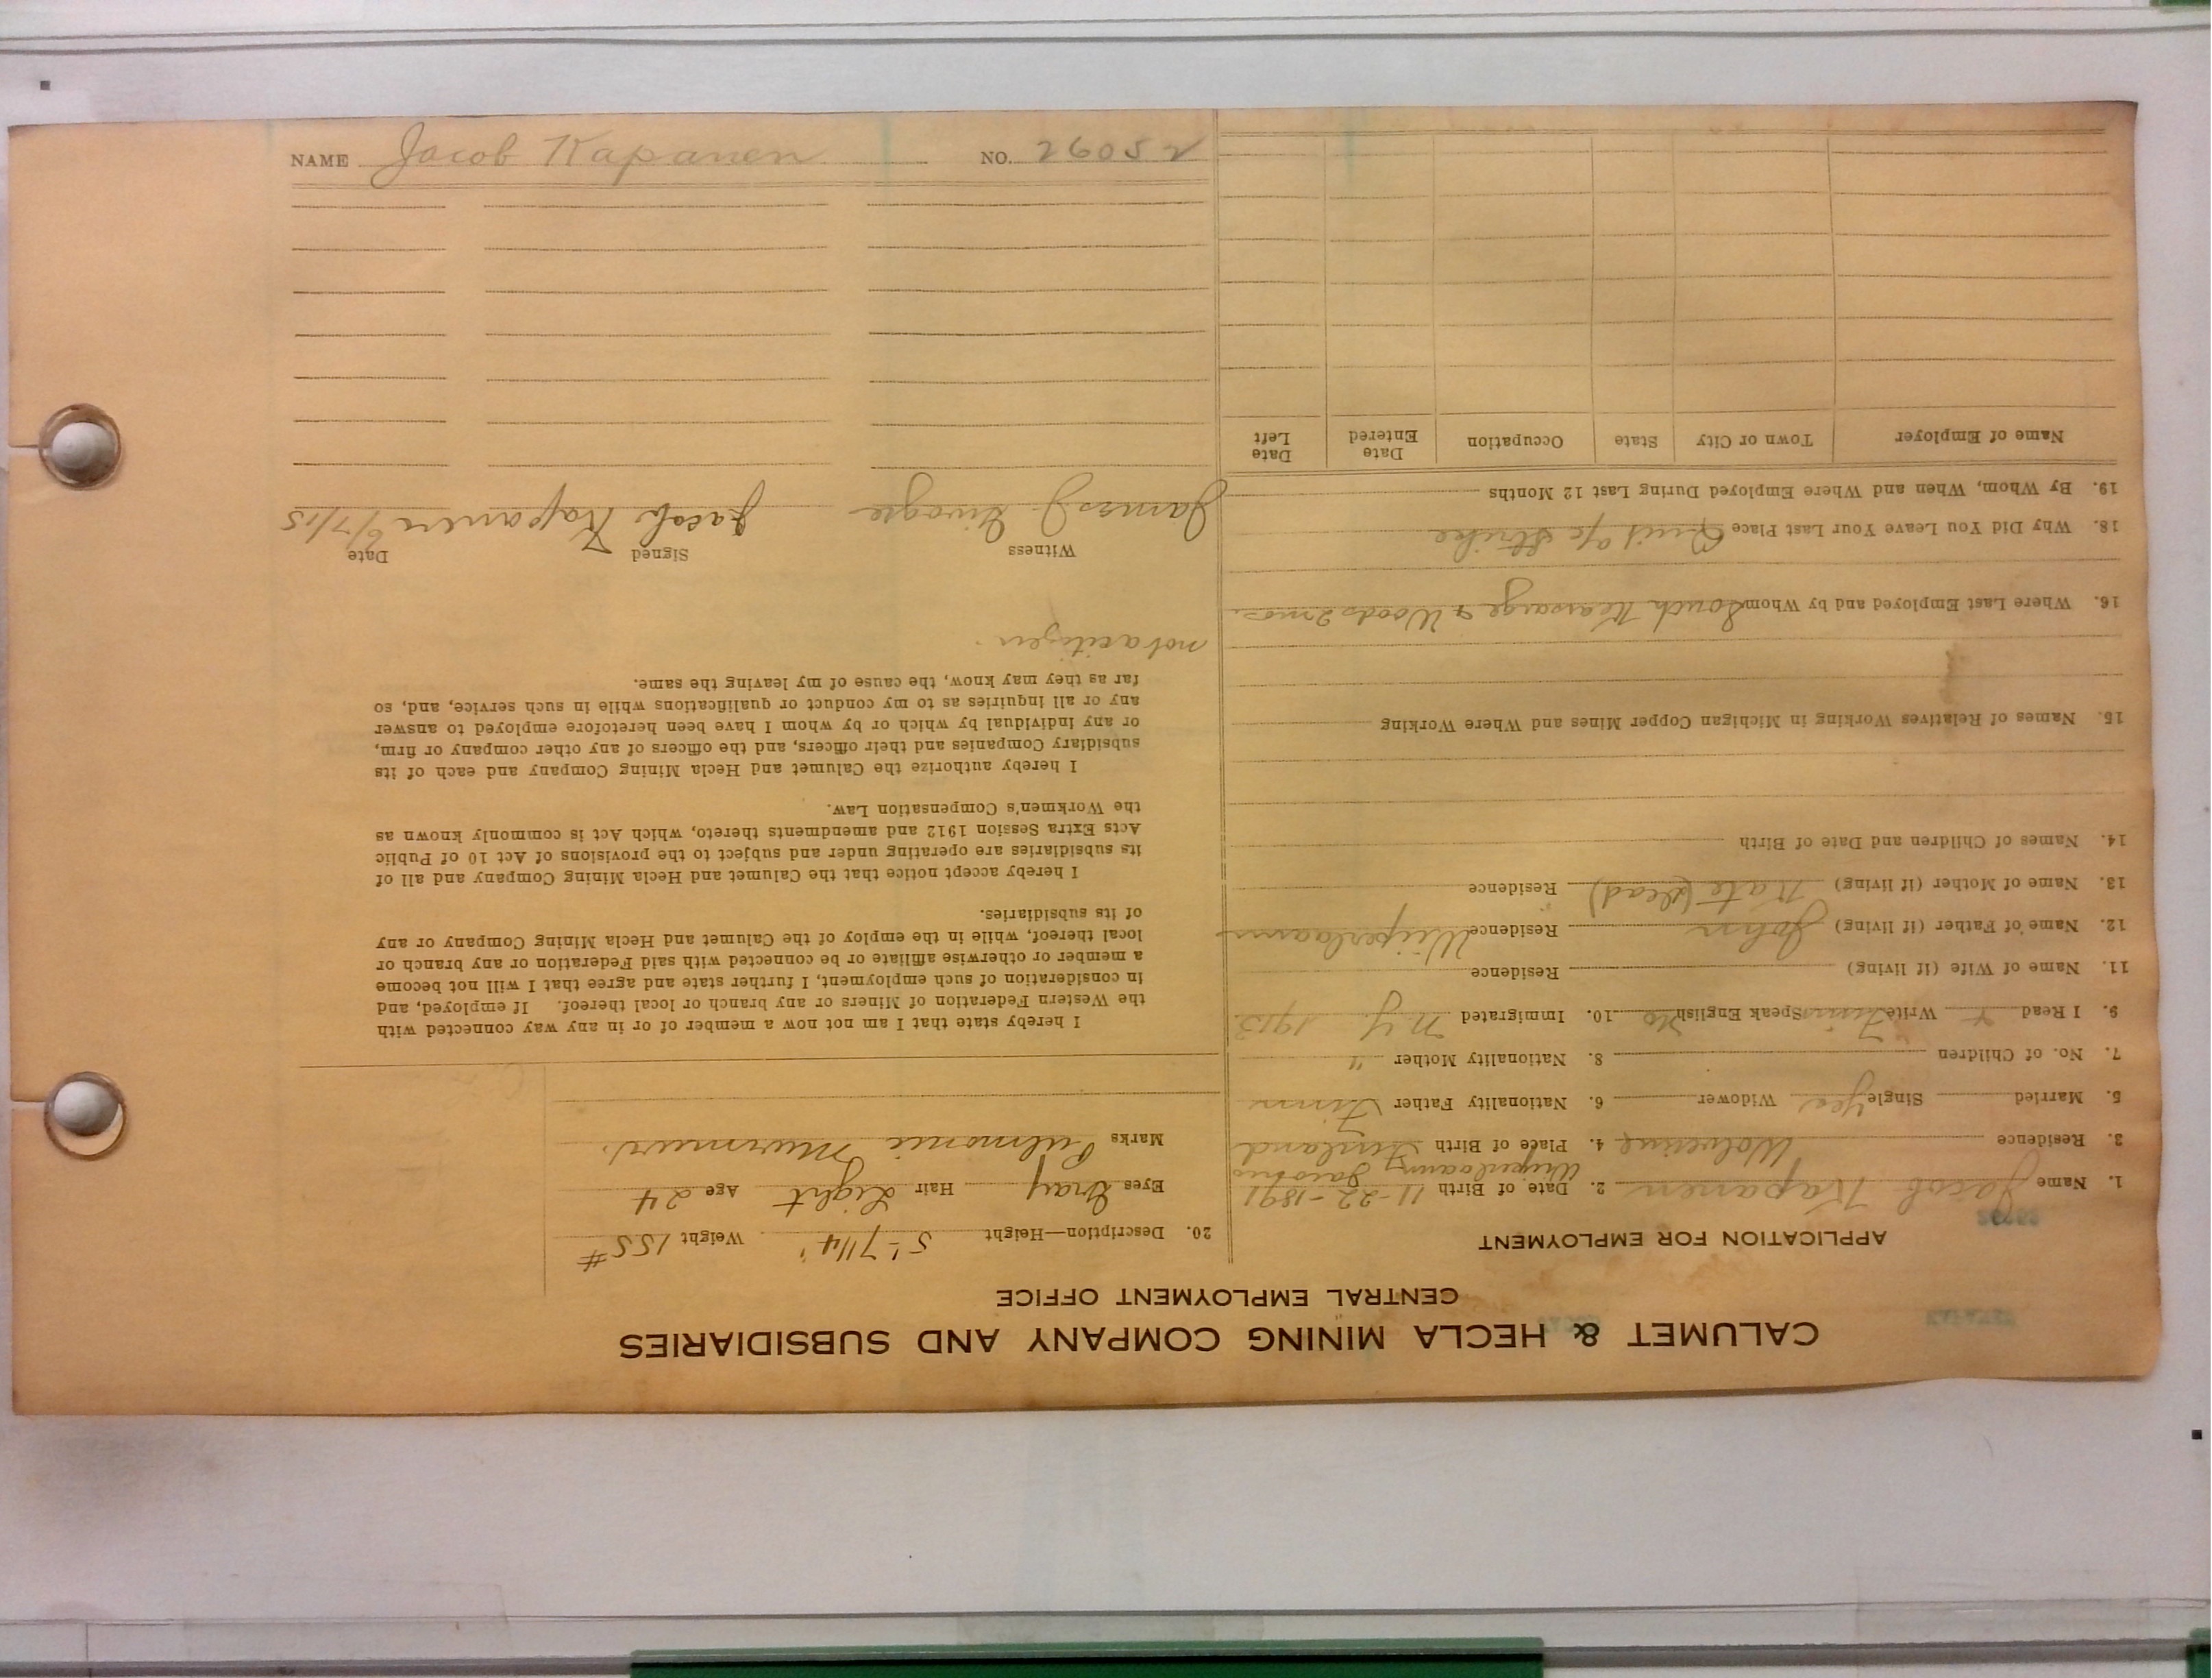 CALUMET & HECLA MINING COMPANY AND SUBSIDIARIES
CENTRAL EMPLOYMENT OFFICE
APPLICATION FOR EMPLOYMENT
1. Name Jacob Kapanen 2. Date of Birth 11-22-1891
3. Residence Wolverine 4. Place of Birth Finland
5. Married Single Yes Widower 6. Nationality Father Finn
7. No. of Children 8. Nationality Mother "
9. I Read Write Finn Speak English No 10. Immigrated N.Y. 1913
11. Name of Wife (if living) Residence
12. Name of Father (if living) John Residence
13. Name of Mother (if living) Kate (dead) Residence
14. Names of Children and Date of Birth
15. Names of Relatives Working in Michigan Copper Mines and Where Working
16. Where Last Employed and by Whom South Kearsarge & Woods 2 mos.
18. Why Did You Leave Your Last Place Quit a/c Strike
19. By Whom, When and Where Employed During Last 12 Months
Name of Employer Town or City State Occupation Date Entered Date Left
20. Description—Height 5'-7 1/4" Weight 155#
Eyes Gray Hair Light Age 24
Marks Pulmonic Murmurs.
I hereby state that I am not now a member of or in any way connected with
the Western Federation of Miners or any branch or local thereof. If employed, and
in consideration of such employment, I further state and agree that I will not become
a member or otherwise affiliate or be connected with said Federation or any branch or
local thereof, while in the employ of the Calumet and Hecla Mining Company or any
of its subsidiaries.
I hereby accept notice that the Calumet and Hecla Mining Company and all of
its subsidiaries are operating under and subject to the provisions of Act 10 of Public
Acts Extra Session 1912 and amendments thereto, which Act is commonly known as
the Workmen's Compensation Law.
I hereby authorize the Calumet and Hecla Mining Company and each of its
subsidiary Companies and their officers, and the officers of any other company or firm,
or any individual by which or by whom I have been heretofore employed to answer
any or all inquiries as to my conduct or qualifications while in such service, and, so
far as they may know, the cause of my leaving the same.
not a citizen.
Witness Signed Date
James J. Jacob Kapanen 6/7/15
NAME Jacob Kapanen NO. 26052